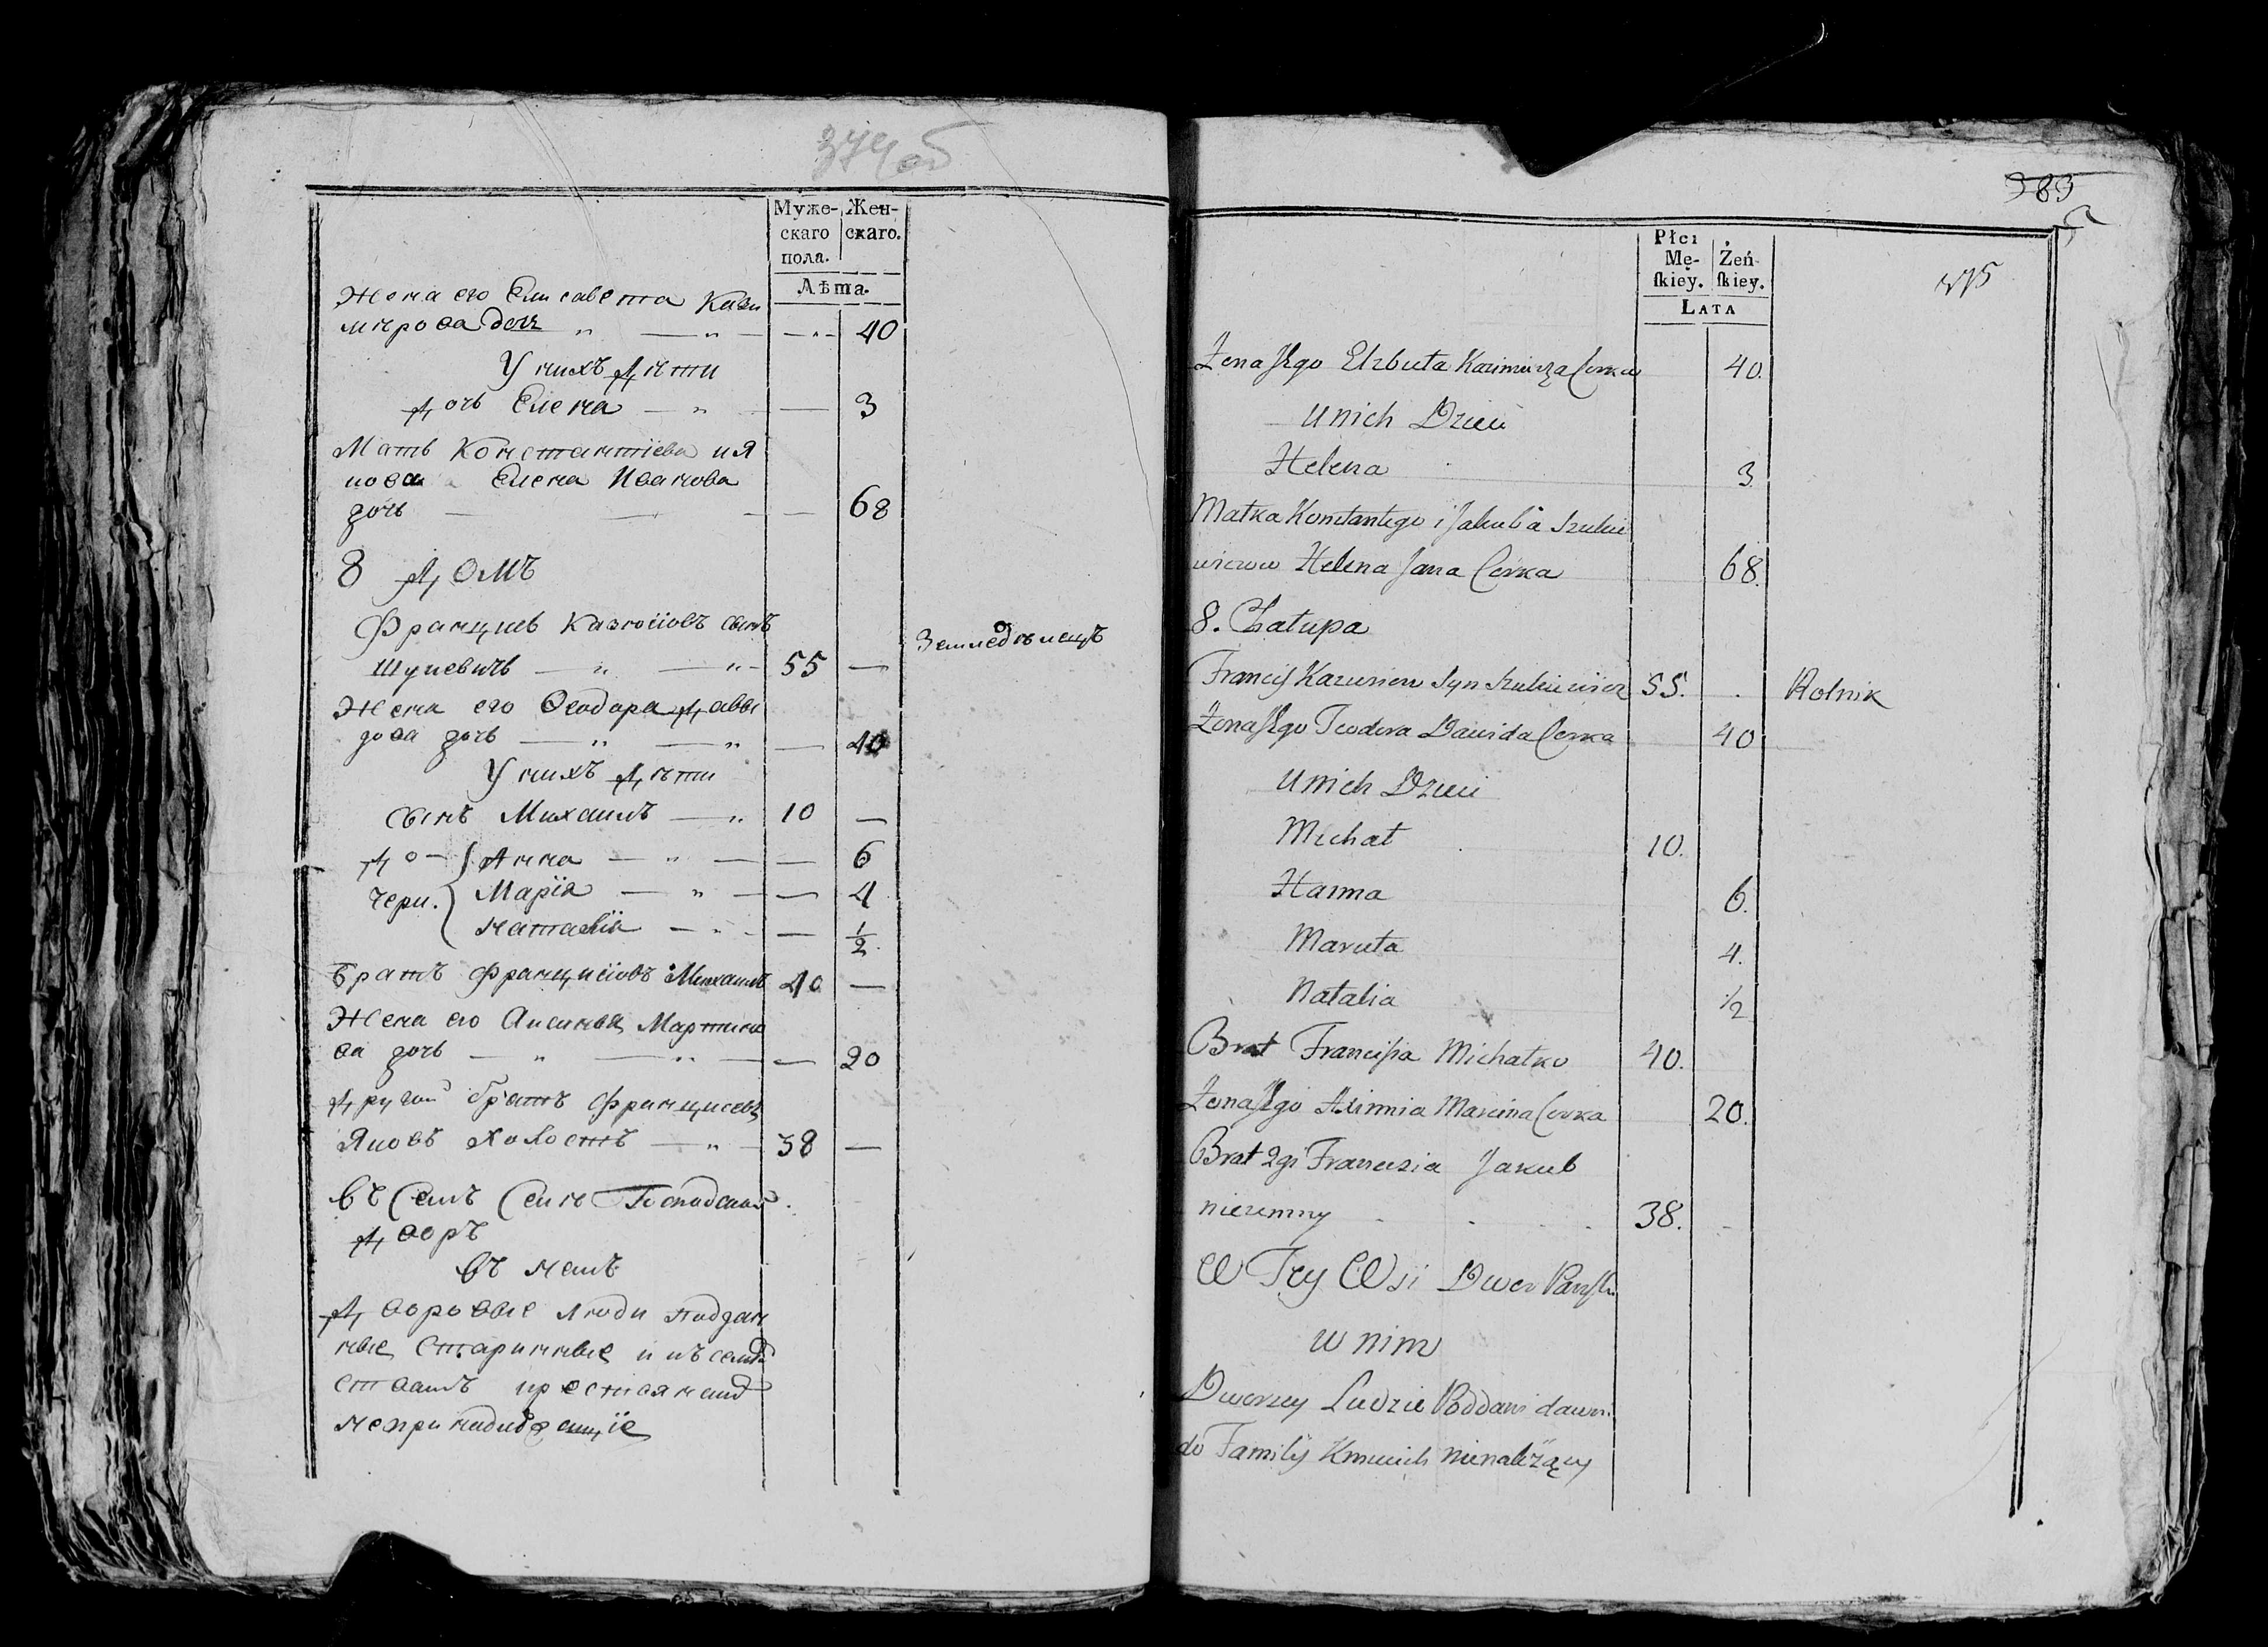 374 об
Муже- Жен-
скаго скаго.
пола.
Лѣта.
Жена его Елисавета Кази
мирова дочь " — " — " — 40
У нихъ дѣти
дочь Елена — " — 3
Мать Константiева и Я
кова Елена Иванова
дочь — — — 68
8 домъ
Францишъ Казюловъ сынъ
Шукевичъ — " — " — 55 — Земледѣлецъ
Жена его Ѳеодора Давы
дова дочь — " — " — — 40
У нихъ дѣти
сынъ Михаилъ — " 10 —
до- Анна — " — — 6
чери. Марiя — " — — 4
Наталiя — " — — 1/2
Братъ Францишовъ Михаилъ 40 —
Жена его Аксинья Мартино
ва дочь — " — " — — 20
другой братъ Францишовъ
Яковъ холостъ — " — 38 —
въ семъ селѣ Господскiй
дворъ
въ немъ
дворовые люди поддан
ные старинные и къ семей
ствамъ крестьянскимъ
непринадлежащiе
383
375
Płci
Mę- Żeń-
skiey. skiey.
LATA
Żona Jego Elzbieta Kazimierza Corka 40.
U nich Dzieci
Helena 3
Matka Konstantego i Jakuba Szukie
wiczow Helena Jana Corka 68.
8. Chałupa
Francis Kazusiow Syn Szukiewicz 55. . Rolnik
Żona Jego Teodora Dawida Corka 40
U nich Dzieci
Michał 10.
Hanna 6.
Maruta 4.
Natalia 1/2
Brat Francisia Michałko 40.
Żona Jego Axinnia Marcina Corka 20.
Brat 2gi Francisia Jakub
nieżenny 38.
W Tey Wsi Dwor Pański
w nim
Dworscy Ludzie Poddani dawni
do Familij Kmiecich nienależący